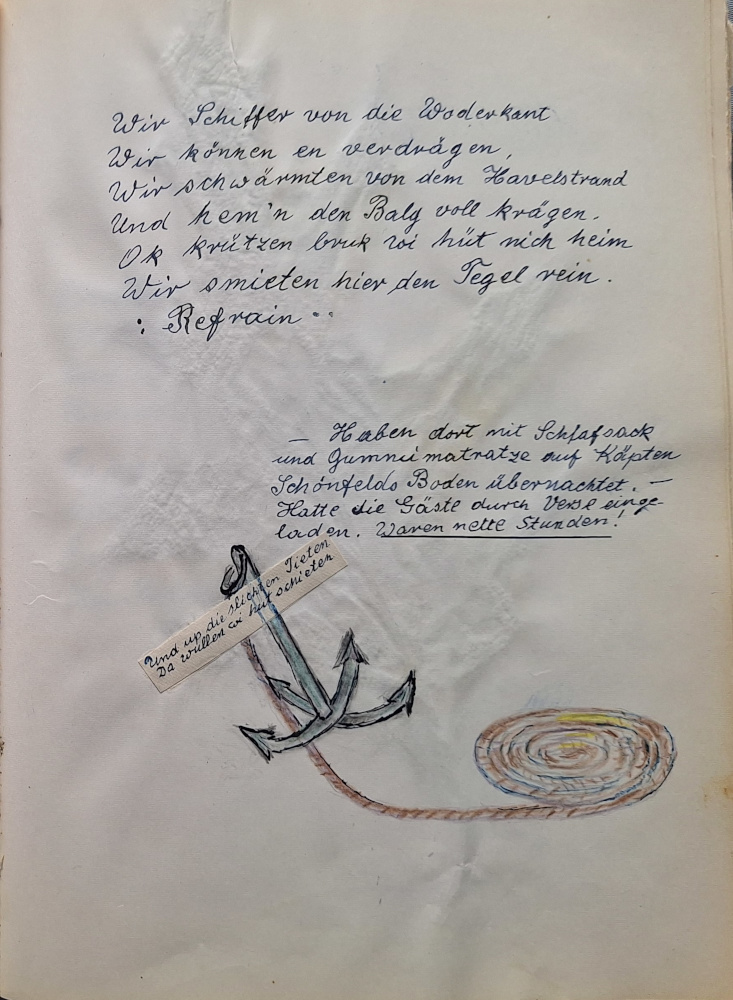 Wir Schiffer von die Woderkant
Wir können en verdrägen,
Wir schwärmten von dem Havelstrand
Und hem'n den Balg voll krägen.
Ok krützen bruk wi hüt nich heim
Wir smieten hier den Tegel rein.
: Refrain :
– Haben dort mit Schlafsack
und Gummimatratze auf Käpten
Schönfelds Boden übernachtet. –
Hatte die Gäste durch Verse einge-
laden. Waren nette Stunden!
Und up die slichten Tieten
Da wullen wi hüt schieten